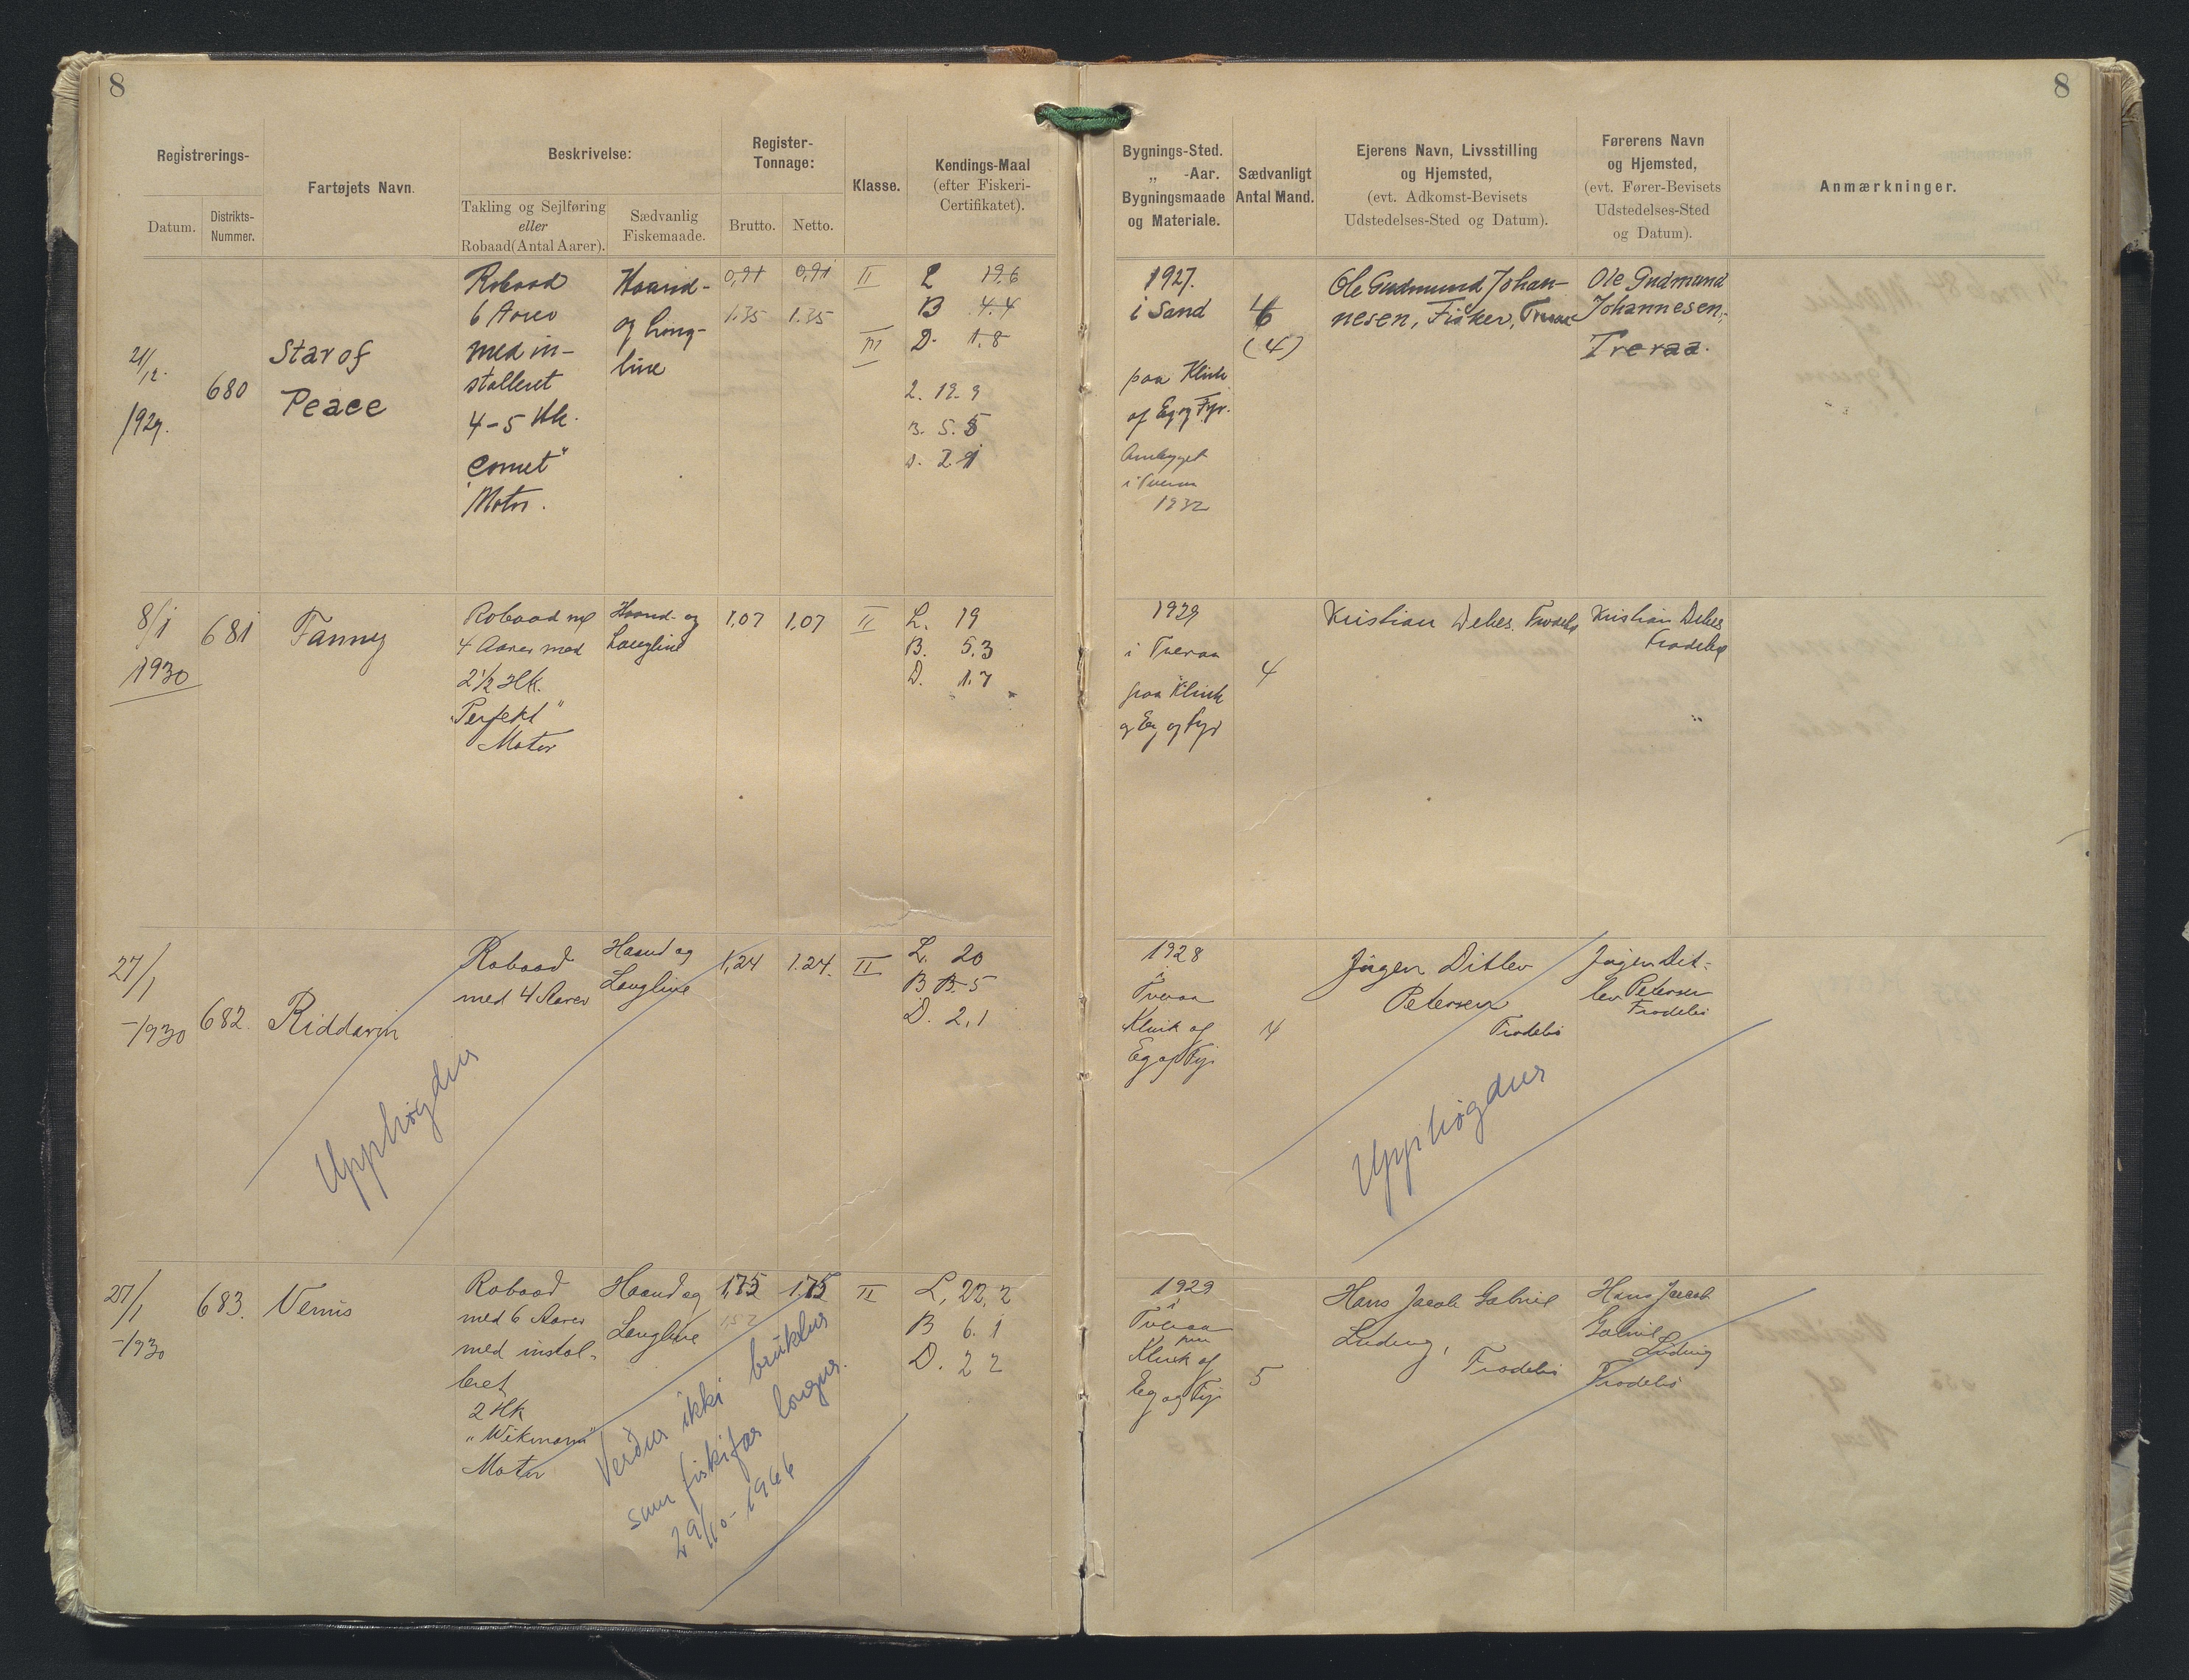 8
8
Registrerings-
Datum.
Distrikts-
Nummer.
Fartøjets Navn.
Beskrivelse:
Takling og Sejlføring
eller
Robaad(Antal Aarer).
Sædvanlig
Fiskemaade.
Register-
Tonnage:
Brutto.
Netto.
Klasse.
Kendings-Maal
(efter Fiskeri-
Certifikatet).
Bygnings-Sted.
„ -Aar.
Bygningsmaade
og Materiale.
Sædvanligt
Antal Mand.
Ejerens Navn, Livsstilling
og Hjemsted,
(evt. Adkomst-Bevisets
Udstedelses-Sted og Datum).
Førerens Navn
og Hjemsted,
(evt. Fører-Bevisets
Udstedelses-Sted
og Datum).
Anmærkninger.
21/12.
1929.
680
Star of
Peace
Robaad
6 Aarer
med in-
stalleret
4-5 Hk.
"Comet"
Motor.
Haand-
og Lang-
line
0,91
0,91
1.35
1.35
II
III
L 19.6
B 4.4
D. 1.8
L. 19.9
B. 5.5
D. 2.1
1927.
i Sand
paa Klink
af Eg og Fyr.
Ombygget
i Tveraa
1932
(4)
Ole Gudmund Johan-
nesen, Fisker, Tveraa
Ole Gudmund
Johannesen,
Tveraa.
8/1
1930
681
Fanny
Robaad m/
4 Aarer med
2 1/2 Hk.
"Perfekt"
Motor
Haand- og
Langline
1,07
1,07
II
L. 19
B. 5.3
D. 1.7
1929
i Tveraa
paa Klink
af Eg og Fyr
4
Kristian Debes. Frodebø
Kristian Debes
Frodebø
27/1
-1930
682.
Riddarin
Robaad
med 4 Aarer
Haand og
Langline
1,24
1.24.
II
L. 20
B B. 5
D. 2,1
1928
i
Tveraa
Klink af
Eg og Fyr
4
Jógen Ditlev
Petersen
Frodebø
Jógen Dit-
lev Petersen
Frodebø
Upphøgdur
Upphøgdur
27/1
-1930
683.
Venus
Robaad
med 6 Aarer
med instal-
leret
2 Hk
"Wikmann"
Motor
Haand og
Langline
1,75
1.75
152
II
L, 22,2
B 6.1
D. 2 2
1929
i
Tveraa
paa
Klink af
Eg og Fyr
5
Hans Jacob Gabriel
Ludvig,
Frodebø
Hans Jacob
Gabriel
Ludvig
Frodebø
Verður ikki brúktur
sum fiskifar longur.
29/10-1966